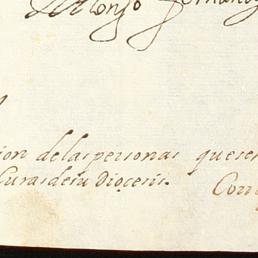 Alonso Fernandez
ion delas personas que se
Curas de su Diocesis. Con